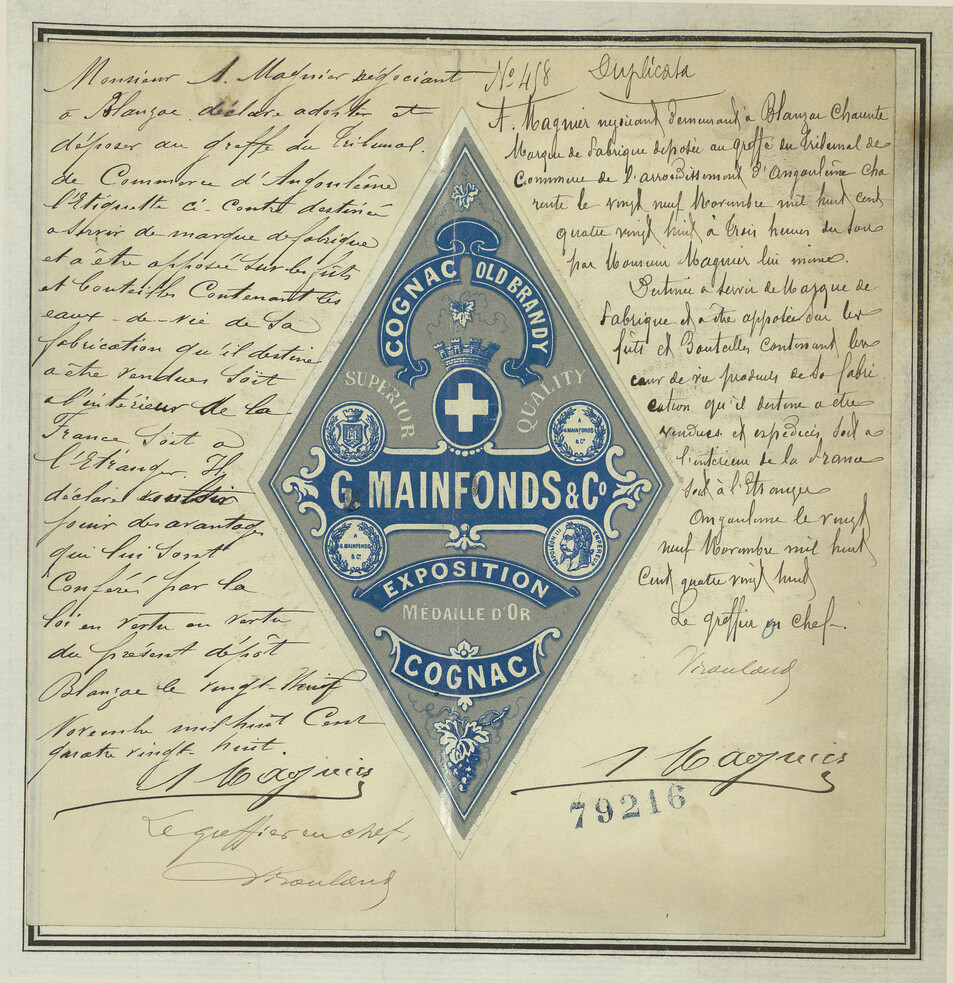 Monsieur A. Magnier Négociant
a Blanzac déclare adopter et
déposer au greffe du Tribunal
de Commerce d'Angoulême
l'Etiquette ci-contre destinée
a servir de marque de fabrique
et a être apposée sur les fûts
et bouteilles Contenant les
eaux-de-vie de Sa
fabrication qu'il destine
a être vendues Soit
a l'intérieur de la
France Soit a
l'Etranger. Il
déclare vouloir
jouir des avantages
qui lui Sont
Conférés par la
loi en vertu en vertu
du présent dépôt
Blanzac le vingt-Neuf
Novembre mil huit Cent
quatre vingt huit.
A Magnier
Le greffier en chef,
COGNAC OLD BRANDY
SUPERIOR QUALITY
A
G. MAINFONDS
& Cº
G. MAINFONDS & Cº
A
G. MAINFONDS
& Cº
NAPOLEON III EMPEREUR
EXPOSITION
MÉDAILLE D'OR
COGNAC
Nº 458 Duplicata
A. Magnier négociant demeurant à Blanzac Charente
Marque de fabrique déposée au greffe du Tribunal de
Commerce de l'arrondissement d'Angoulême Cha
rente le vingt neuf Novembre mil huit cent
quatre vingt huit à trois heures du soir
par Monsieur Magnier lui même.
Destinée a servir de Marque de
fabrique et a être apposée sur les
fûts et Bouteilles contenant les
eaux de vie produits de Sa fabri
cation qu'il destine a être
vendues et expédiées soit a
l'intérieur de la France
soit à l'Etranger
Angoulême le vingt
neuf Novembre mil huit
Cent quatre vingt huit
Le greffier en chef.
A Magnier
79216